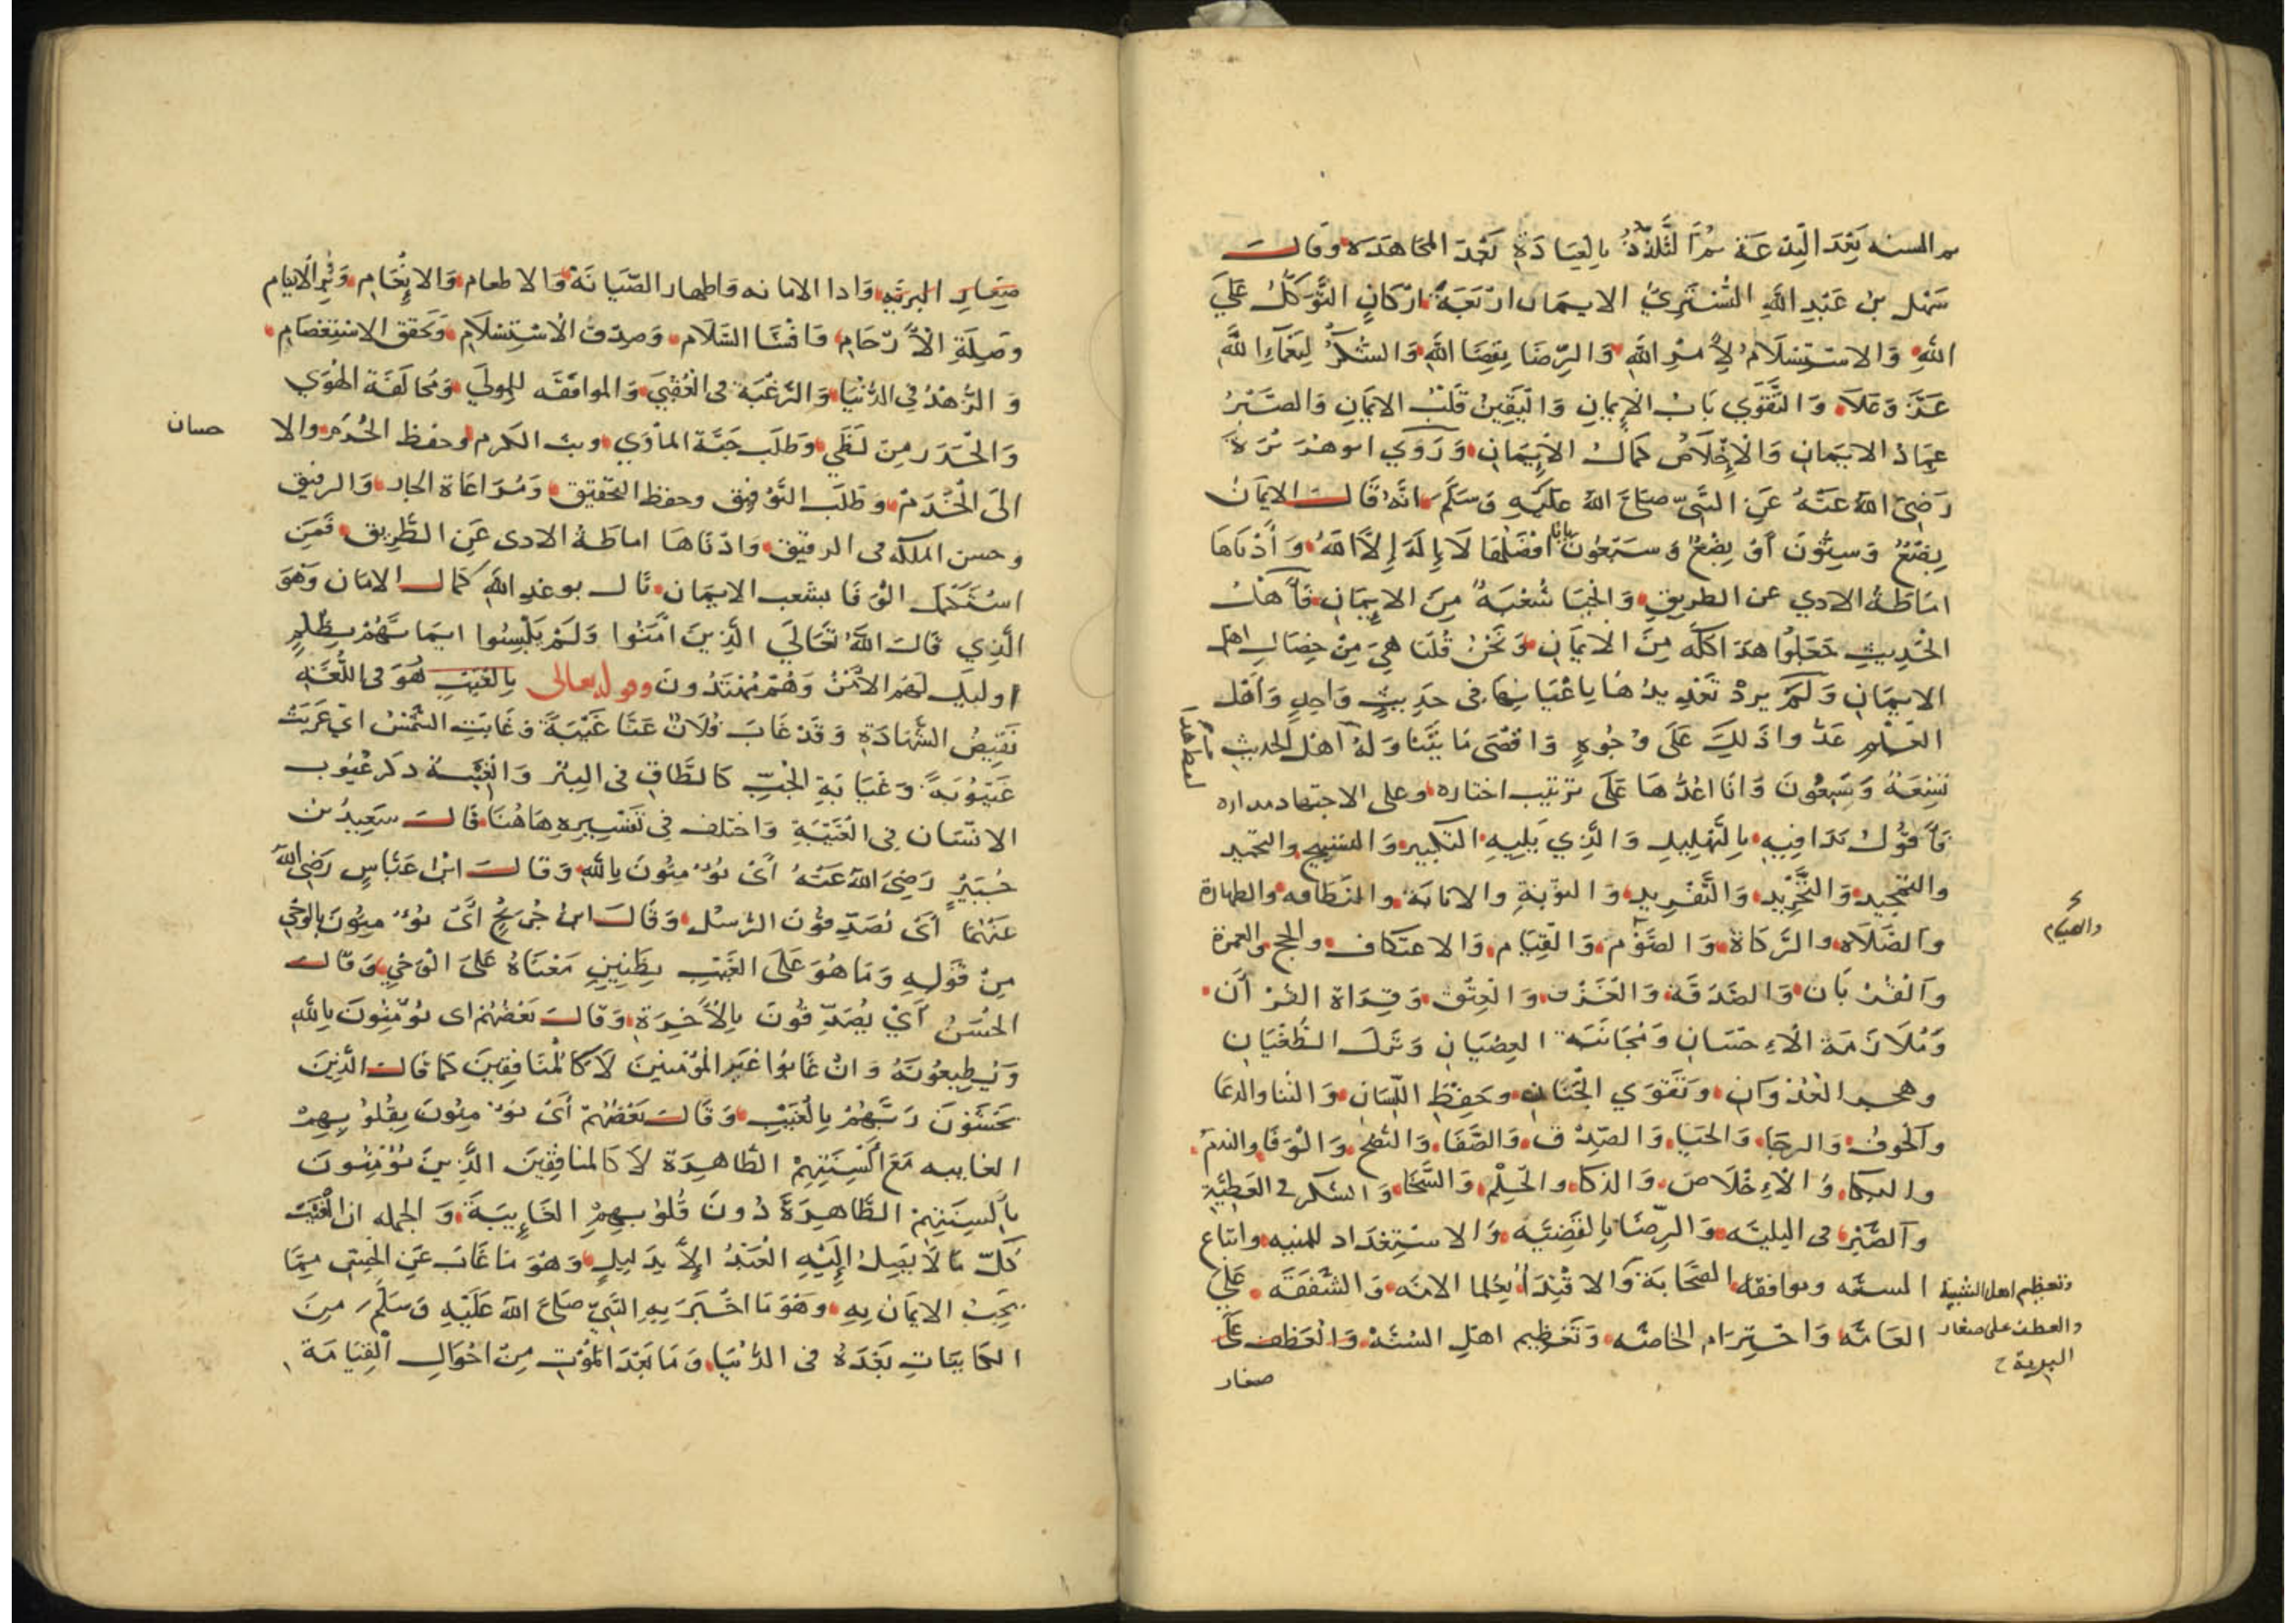 ثم السنه بَعْدَ البِدْعَة ثُمَّ التَّلَذُّذُ بِالعِبَادَةِ بَعْدَ المجَاهَدَه وقَالَ
سَهْل بنُ عَبْدِ اللهِ التُّسْتَرِيُّ الايمَان ارْبَعَةُ ارْكَانٍ التَّوَكُّلُ عَلَى
اللهِ وَالاسْتِسْلَامُ لِأَمْرِ اللهِ وَالرِّضَا بِقَضَا اللهِ وَالشُّكْرُ لِنَعْمَآءِ اللهِ
عَزَّ وَعَلَا وَالتَّقْوَي بَابُ الإِيمَانِ وَاليَقِينُ قَلْبُ الايمَانِ وَالصَّبْرُ
عِمَادُ الايمَانِ وَالْإِخْلَاصُ كمَالُ الإِيمَانِ وَرَوَي ابوهُرَيْرَةَ
رَضِيَ اللهُ عَنْهُ عَنِ النَّبِيِّ صَلَّى اللهُ عَلَيْهِ وَسَلَّمَ انَّهُ قَالَ الايمَانُ
بِضْعٌ وَسِتُّونَ أَوْ بِضْعٌ وَسَبْعُونَ بَابًا افْضَلُهَا لَا إِلَهَ إِلَّا اللهُ وَأَدْنَاهَا
امَاطَةُ الادي عن الطرِيقِ وَالحَيَا شُعْبَةٌ مِنَ الايِمَانِ فَأَهْلُ
الحَدِيثِ جَعَلُوا هَذَا كلَّه مِنَ الايمَانِ وَنَحْنُ قُلْنَا هِيَ مِنْ خِصَالِ اهل
الايمَانِ وَلَمْ يرِدْ تَعْدِيدُهَا بِاعْيَانِهَا فى حَدِيثٍ وَاحِدٍ وَأَهْل
العِلْمِ عَدُّوا ذَلِكَ عَلَى وُجُوهٍ وَاقْصَى مَا بَيَّنَا وَلَهُ أهْلُ الحديثِ
تِسْعَةٌ وَسَبْعُونَ وَانَا اعُدُّهَا عَلَى تَرْتيب اختاره وعلى الاجتهاد مداره
فَأَقُولُ بَدَا فِيهِ بِالتَّهْلِيلِ وَالَّذِي يَلِيهِ التكبير وَالتسبيح والتحميد
والتمجيد وَالتَّجْرِيْد وَالتَّفْرِيدِ وَالتوْبَةِ والانابَة والنَّظَافه والطهارة
والصَّلَاه والزَّكَاة وَالصَّوْم وَالقِيَام وَالاعتكاف والحج والعمرة
وَالقُرْبَان وَالصَّدَقَة وَالغَزْو وَالعِتْق وَقِرَاة القُرْأَن
وَمُلَازَمَة الْإِحْسَانِ وَمُجَانَبَة العِصْيَانِ وَتَرْك الطُّغْيَانِ
وهجر العُدْوَانِ وَتَقْوَي الجَنَان وَحِفْظ اللِّسَان وَالثنا والدعَا
وَالخوف وَالرجَا وَالحَيَا وَالصّدْق وَالصَّفَا وَالنُّصْح وَالوَفَا والندَم
والبكَا وَالْإِخْلَاص وَالذكا والحِلْم وَالسَّخَا وَالشكر في العَطِيَّةِ
وَالصَّبْر فى البليَّه وَالرِّضَا بِالقَضِيَّه وَالاسْتِعْدَاد للمنيه واتباع
السنه وموافقة الصَّحَابَة وَالاقْتِدَا بعُلَمَا الامّه وَالشَّفَقَه عَلَي
العَامَّه وَاحْتِرَام الخاصّه وَتَعْظِيم اهلِ السُنَّة وَالْعَطْفِ عَلَى
صغار
بابا
لعطه هذا
والصيام
وتعظيم اهل الشيبة
والعطف على صغار
البرية ح
صِغَارِ البريَّه وَادا الامانه وَاظهار الصّيَانَة وَالاطعام وَالانْعَام وَبِرّ الايتام
وصِلَةِ الْأَرْحَام وَافْشَا السَّلَام وَصِدْق الاسْتِسْلَام وَتَحقق الاسْتِعْصَام
وَالزُّهْدُ فى الدُّنْيَا وَالرَّغْبَة فى العُقْبَى وَالموافَقَه للمولَى وَمُخَالَفَة الهَوَي
وَالحَذَر مِن لَظَي وَطَلَب جَنَّة المأوَي وبث الكرم وحفظ الحُرَم والا
حسان
الَى الْخَدَم وَطَلَب التَّوْفِيق وحفظ التحْقيق وَمُرَاعَاة الجار وَالرفيق
وحسن الملكه فى الرقيق وَادْنَاهَا اماطَةُ الادى عَنِ الطَّرِيق فَمَنِ
اسْتَكْمَلَ الْوَفَا بشعب الايمَان نَالَ بوعْدِ اللهِ كمَال الامَان وَهوَ
الَّذِي قَالَ اللهُ تَعَالَى الَّذِينَ امَنُوا وَلَمْ يَلْبِسُوا ايمَانَهُمْ بِظُلْمٍ
اوليك لَهُمُ الأَمْنُ وَهُمْ مُهْتَدُونَ وقوله تعالى بِالغَيْبِ هُوَ فى اللُّغَةِ
نَقِيضُ الشَّهَادَةِ وَقَدْ غَابَ فُلَانٌ عَنَّا غَيْبَةً وَغَابَتِ الشَّمْسُ اي غَرَبَتْ
غَيْبُوبَةً وَغَيَابَةِ الجُبِّ كَالطَّاقِ فى البِئْرِ وَالْغِيْبَة ذكر عُيُوب
الانْسَان فى الْغَيْبَةِ وَاختلف فى تَفْسِيرِهِ هَاهُنَا قَالَ سَعِيدُ بنُ
جُبَيْرٍ رَضِيَ اللهُ عَنْهُ أَىْ يُؤْمِنُونَ بِاللهِ وَقَالَ ابْنُ عَبَّاسٍ رَضِيَ اللهُ
عَنْهُمَا أَىْ يُصَدِّقُونَ الرُّسُل وَقَالَ ابنُ جُرَيْجٍ أَىْ يُؤْمِنُونَ بِالوَحْي
مِنْ قَوْلِهِ وَمَا هُوَ عَلَى الغَيْبِ بِظَنِينٍ مَعْنَاهُ عَلَى الْوَحْيِ وَقَالَ
الحَسَنُ أَيْ يُصَدِّقُونَ بِالْأَخِرَةِ وَقَالَ بَعْضُهُمْ اى يُؤْمِنُونَ بِاللهِ
وَيُطِيعُونَهُ وَانْ غَابُوا عَنِ المُؤْمِنِينَ لَا كَالْمُنَافِقِينَ كمَا قَالَ الَّذِينَ
يَخْشَوْنَ رَبَّهُمْ بِالْغَيْبِ وَقَالَ بَعْضُهُمْ أَىْ يُؤْمِنُونَ بِقُلُوْبِهِمْ
الغايبه مَعَ أَلْسِنَتِهِمْ الظَّاهِرَة لَا كَالمنافِقِينَ الَّذِينَ يُؤْمِنُونَ
بِأَلْسِنَتِهِمْ الظَّاهِرَةَ دُونَ قُلُوبِهِمْ الغَايِبَةَ وَالجمله ان الْغَيْبَ
كُلّ مَا لَا يَصِلُ إِلَيْهِ الْعَبْدُ إِلَّا بِدَلِيلٍ وَهُوَ مَا غَابَ عَنِ الحِسِّ مِمَّا
يَجِبُ الايمَان بِهِ وهُوَ مَا اخْبَرَ بِهِ النَّبِيّ صَلَّى اللهُ عَلَيْهِ وَسَلَّمَ مِنَ
الكَايِنَاتِ بَعْدَهُ فى الدُّنْيَا وَمَا بَعْدَ المُوْتِ مِنْ احْوَالِ الْقِيَامَةِ